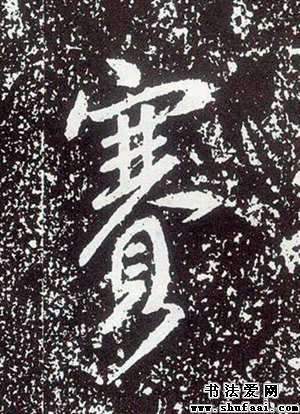 賽
书法爱网
www.shufaai.com